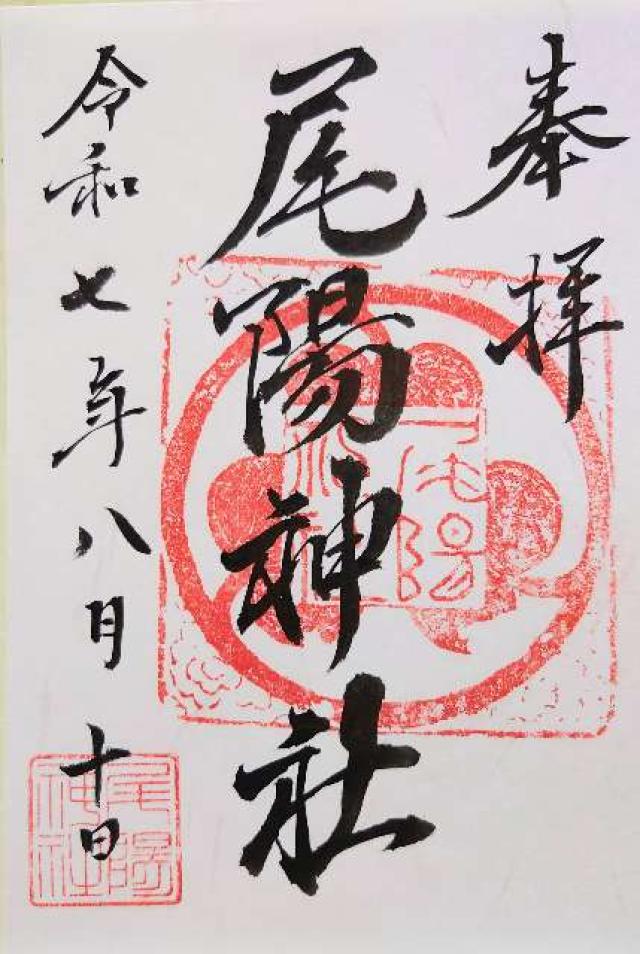 奉拝
尾陽神社
令和七年八月十日
尾陽
神社